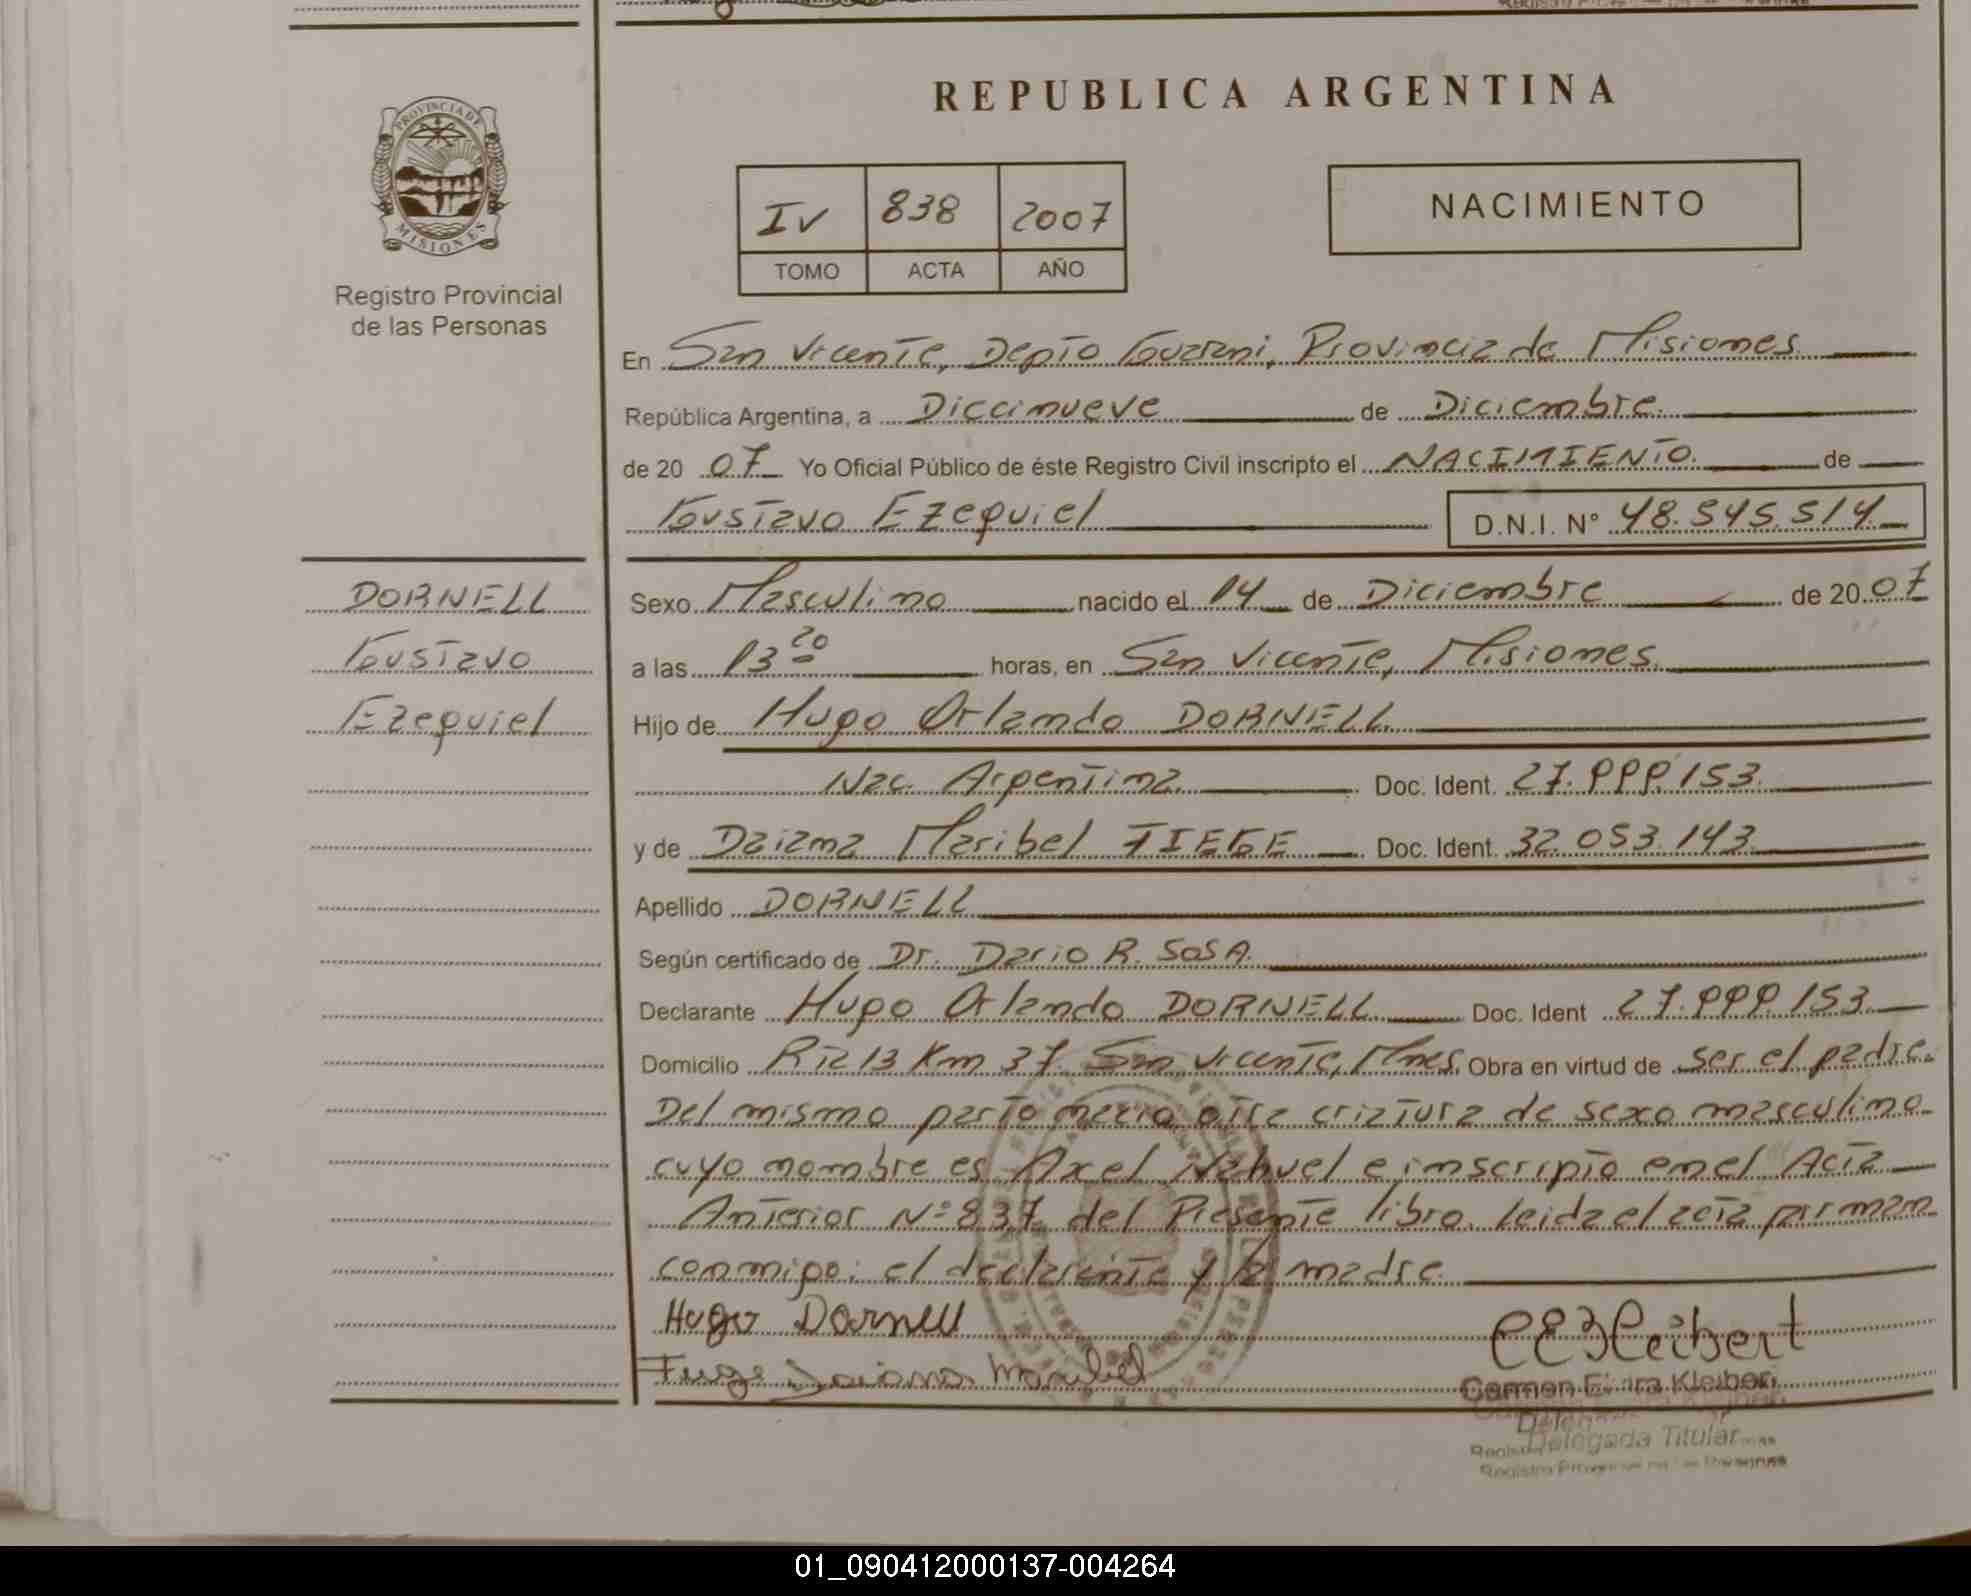 REPUBLICA ARGENTINA
PROVINCIA DE
MISIONES
Registro Provincial
de las Personas
IV 838 2007
TOMO ACTA AÑO
NACIMIENTO
En San Vicente, Depto Guarani, Provincia de Misiones
República Argentina, a Diecinueve de Diciembre
de 20 07 Yo Oficial Público de éste Registro Civil inscripto el NACIMIENTO de
Gustavo Ezequiel D.N.I. N° 48.545.514
DORNELL
Gustavo
Ezequiel
Sexo Masculino nacido el 14 de Diciembre de 20 07
a las 13 20 horas, en San Vicente, Misiones
Hijo de Hugo Orlando DORNELL
Nac. Argentina Doc. Ident. 27.999.153
y de Daiana Maribel FIEGE Doc. Ident. 32.053.143
Apellido DORNELL
Según certificado de Dr. Dario R. SOSA
Declarante Hugo Orlando DORNELL Doc. Ident 27.999.153
Domicilio Rta 13 Km 37 San Vicente, Mnes Obra en virtud de ser el padre
Del mismo parto nacio otra criatura de sexo masculino
cuyo nombre es Axel Nahuel e inscripto en el Acta
Anterior N° 837 del Presente libro. Leida el acta firman
conmigo: el declarante y la madre
Hugo Dornell
Daiana Maribel
CEKleibert
Carmen Kleibert
Delegada Titular
Registro
01_090412000137-004264